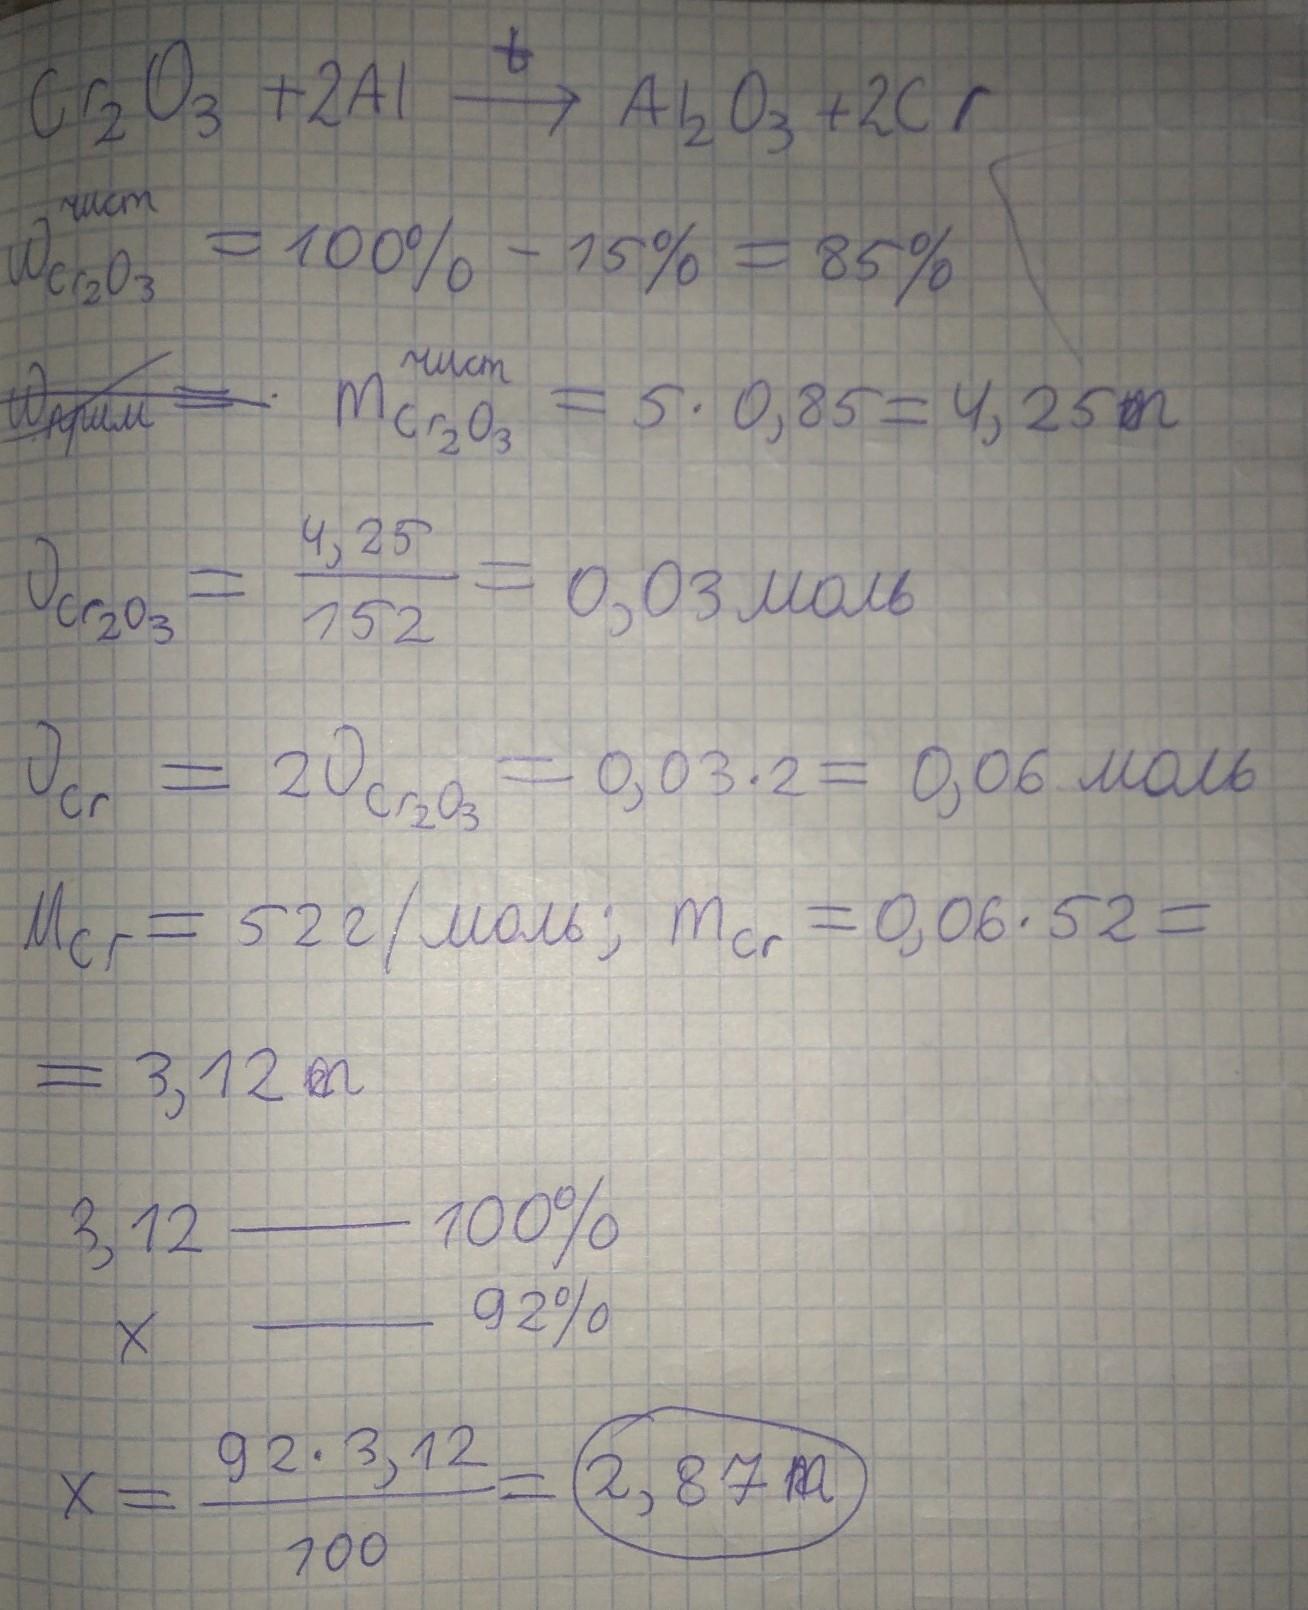 Cr₂O₃ + 2Al →(t) Al₂O₃ + 2Cr
ω чист Cr₂O₃ = 100% - 15% = 85%
ωприм = m чист Cr₂O₃ = 5 · 0,85 = 4,25 т
ν Cr₂O₃ = 4,25 / 152 = 0,03 моль
ν Cr = 2ν Cr₂O₃ = 0,03 · 2 = 0,06 моль
M Cr = 52 г/моль; m Cr = 0,06 · 52 =
= 3,12 т
3,12 — 100%
x — 92%
x = 92 · 3,12 / 100 = 2,87 т